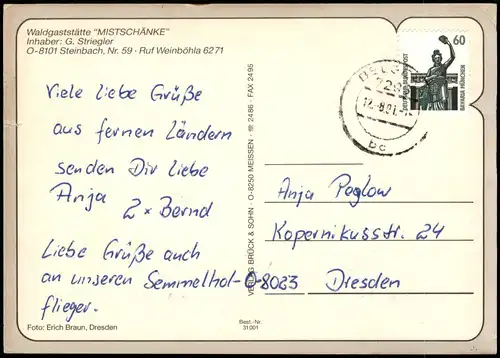 Waldgaststätte "MISTSCHÄNKE"
Inhaber: G. Striegler
O-8101 Steinbach, Nr. 59 · Ruf Weinböhla 6271
Viele liebe Grüße
aus fernen Ländern
senden Dir liebe
Anja
2 x Bernd
Liebe Grüße auch
an unseren Semmelhol-
flieger.
Foto: Erich Braun, Dresden
Best.-Nr.
31 001
VERLAG BRÜCK & SOHN · O-8250 MEISSEN · ☎ 2486 · FAX 2495
60
DEUTSCHE BUNDESPOST
BAVARIA MÜNCHEN
Anja Peglow
Kopernikusstr. 24
O-8023 Dresden